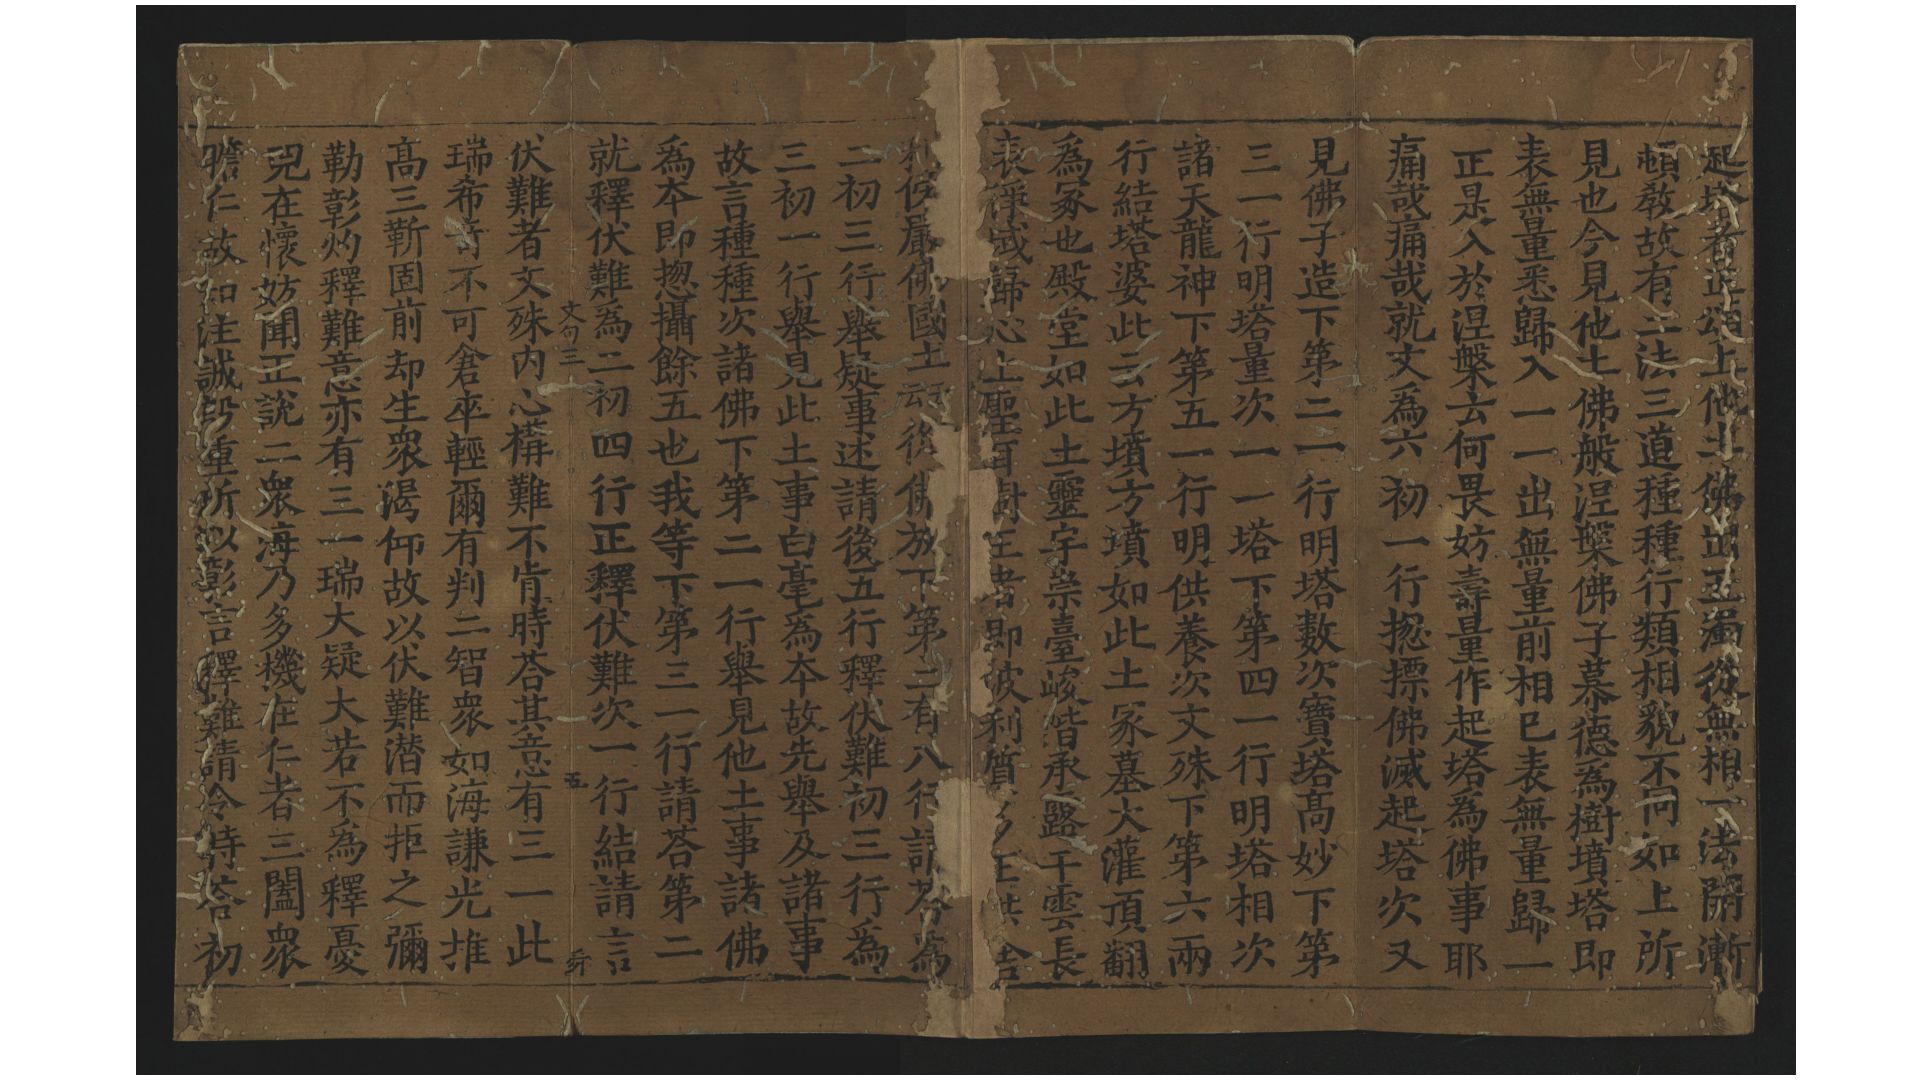 起塔者正頌上他土佛出五濁從無相一法開漸
頓教故有二法三道種種行類相貌不同如上所
見也今見他土佛般涅槃佛子慕德為樹墳塔即
表無量悉歸入一一出無量前相已表無量歸一
正是入於涅槃云何畏妨壽量作起塔為佛事耶
痛哉痛哉就文為六初一行揔摽佛滅起塔次又
見佛子造下第二一行明塔數次寶塔高妙下第
三一行明塔量次一一塔下第四一行明塔相次
諸天龍神下第五一行明供養次文殊下第六兩
行結塔婆此云方墳方墳如此土冢墓大灌頂翻
為冢也殿堂如此土靈宇崇臺峻階承露干雲長
表淨域歸心上聖 樹王者即彼利質多
嚴佛國土云云後佛放下第二有八行請荅為
二初三行舉疑事述請後五行釋伏難初三行為
三初一行舉見此土事白毫為夲故先舉及諸事
故言種種次諸佛下第二一行舉見他土事諸佛
為夲即揔攝餘五也我等下第三一行請荅第二
就釋伏難為二初四行正釋伏難次一行結請言
文句三 五
伏難者文殊內心構難不肯時荅其意有三一此
瑞希竒不可倉卒輕爾有判二智衆如海謙光推
高三靳固前却生衆渴仰故以伏難潛而拒之彌
勒彰灼釋難意亦有三一瑞大疑大若不為釋憂
兕在懷妨聞正說二衆海乃多機在仁者三闔衆
瞻仁故如注誠殷重所以彰言釋難請令時荅初